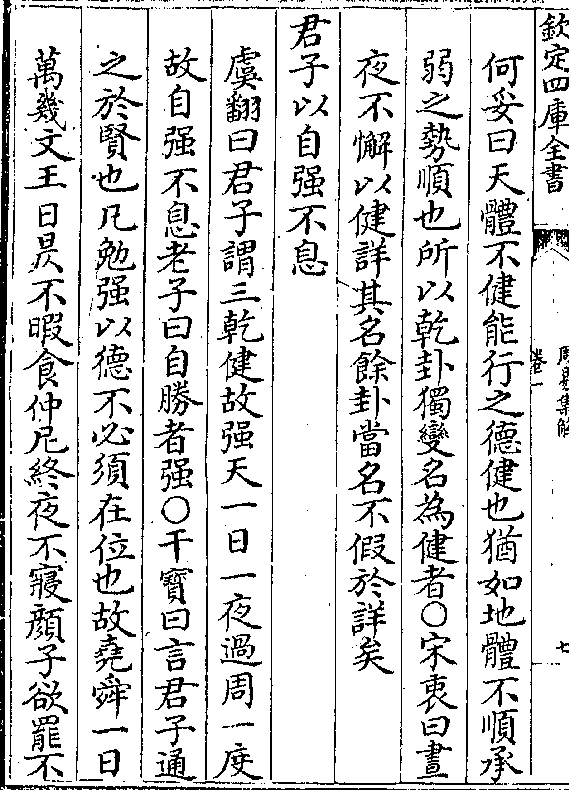 欽定四庫全書
周易集解
卷一
七
何妥曰天體不健能行之德健也猶如地體不順承
弱之勢順也所以乾卦獨變名為健者○宋衷曰晝
夜不懈以健詳其名餘卦當名不假於詳矣
君子以自强不息
虞翻曰君子謂三乾健故强天一日一夜過周一度
故自强不息老子曰自勝者强○干寶曰言君子通
之於賢也凡勉强以德不必須在位也故堯舜一日
萬幾文王日昃不暇食仲尼終夜不寢顔子欲罷不